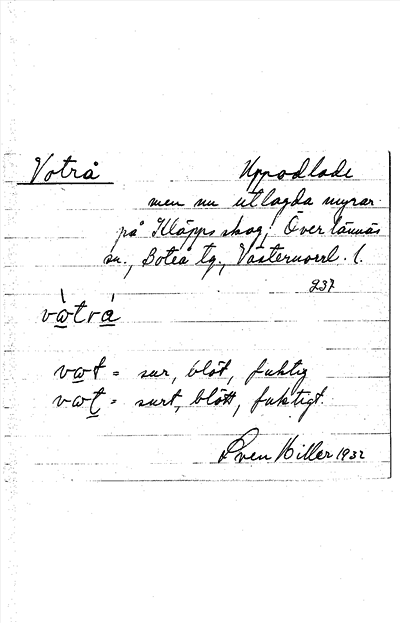 Votrå
Uppodlade
men nu utlagda myrar
på Kläpps skog, Överlännäs
sn., Boteå tg., Västernorrl. l.
237
vò̱trá̱
vo̱t = sur, blöt, fuktig
vo̱t̰ = surt, blött, fuktigt.
Sven Hiller 1932